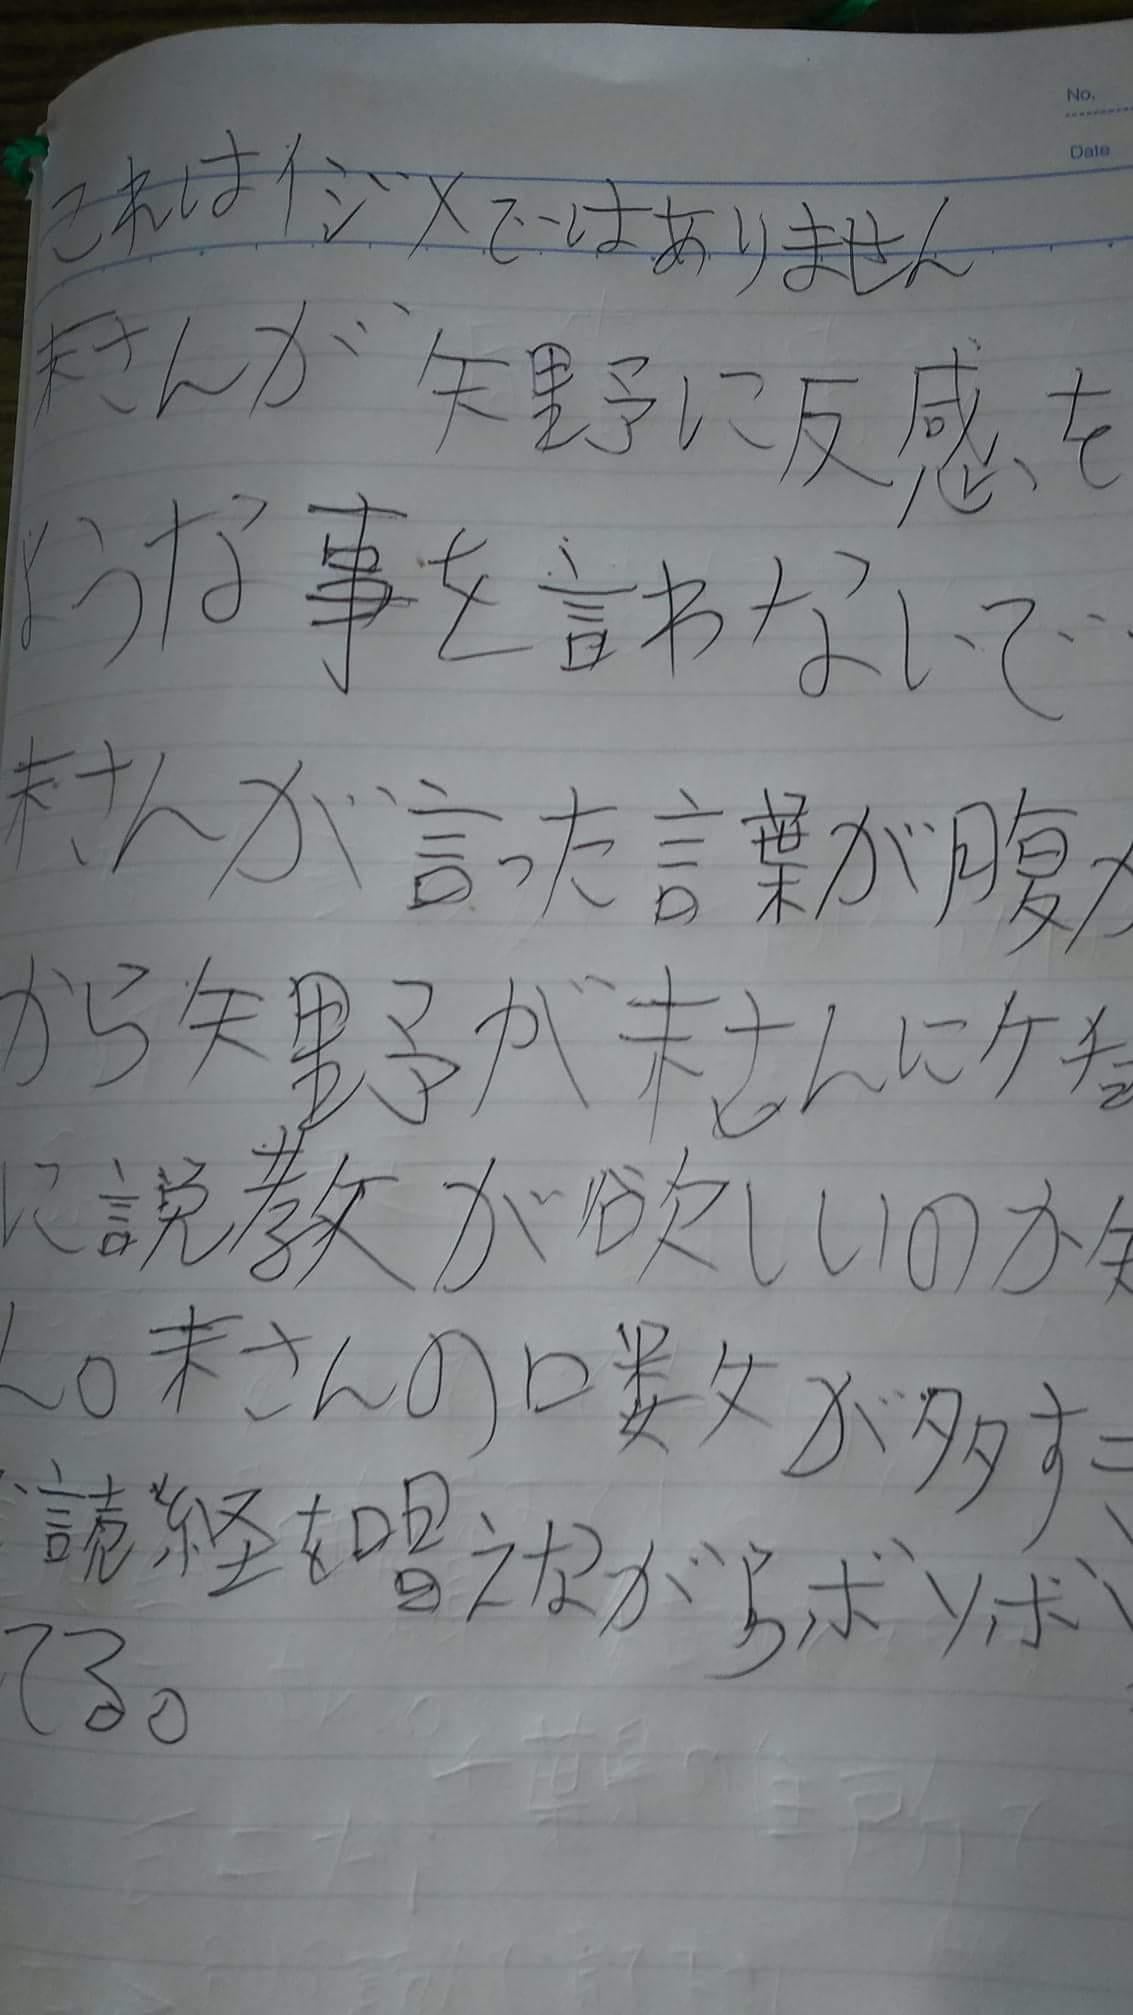 No.
Date
これはイジメではありません
末さんが矢野に反感を
ような事を言わないで
末さんが言った言葉が腹が
から矢野が末さんにケチョ
に説教が欲しいのか矢
ん。末さんの口数が多すぎ
読経を唱えながらボソボソ
てる。